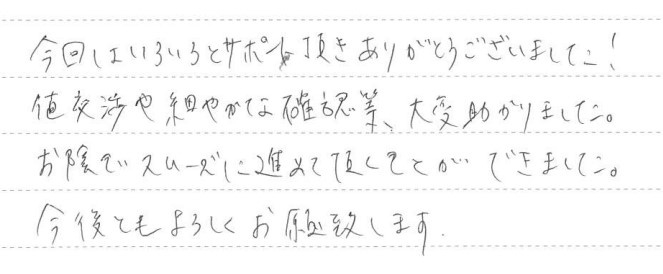 今回はいろいろとサポート頂きありがとうございました！
値交渉や細やかな確認等、大変助かりました。
お陰でスムーズに進めて頂くことができました。
今後ともよろしくお願致します.